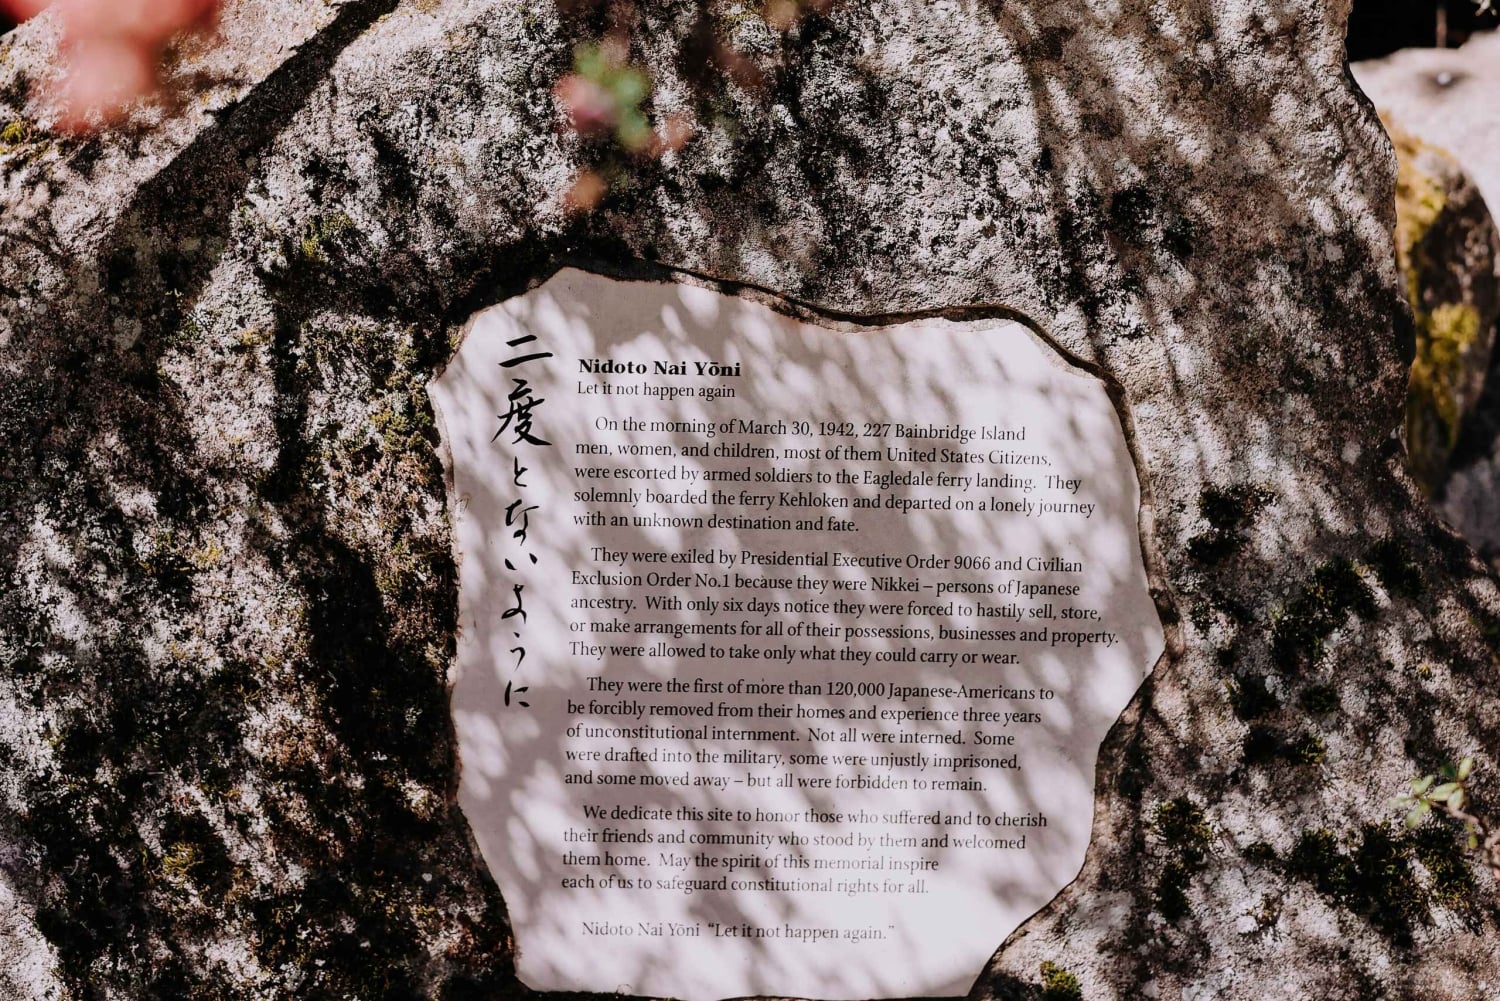 二度とないように
Nidoto Nai Yōni
Let it not happen again
On the morning of March 30, 1942, 227 Bainbridge Island
men, women, and children, most of them United States Citizens,
were escorted by armed soldiers to the Eagledale ferry landing. They
solemnly boarded the ferry Kehloken and departed on a lonely journey
with an unknown destination and fate.
They were exiled by Presidential Executive Order 9066 and Civilian
Exclusion Order No.1 because they were Nikkei – persons of Japanese
ancestry. With only six days notice they were forced to hastily sell, store,
or make arrangements for all of their possessions, businesses and property.
They were allowed to take only what they could carry or wear.
They were the first of more than 120,000 Japanese-Americans to
be forcibly removed from their homes and experience three years
of unconstitutional internment. Not all were interned. Some
were drafted into the military, some were unjustly imprisoned,
and some moved away – but all were forbidden to remain.
We dedicate this site to honor those who suffered and to cherish
their friends and community who stood by them and welcomed
them home. May the spirit of this memorial inspire
each of us to safeguard constitutional rights for all.
Nidoto Nai Yōni “Let it not happen again.”